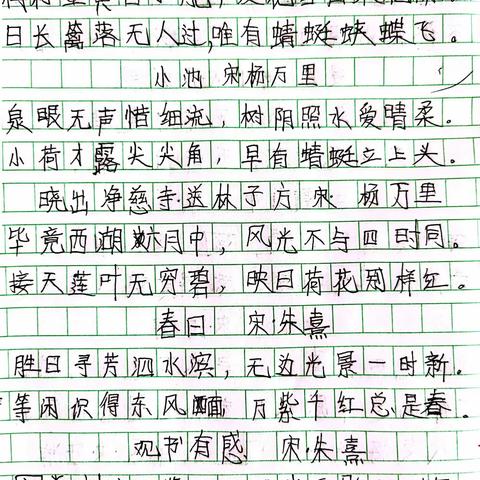 日长篱落无人过,唯有蜻蜓蛱蝶飞。
小池 宋·杨万里
泉眼无声惜细流，树阴照水爱晴柔。
小荷才露尖尖角，早有蜻蜓立上头。
晓出净慈寺送林子方 宋 杨万里
毕竟西湖六月中，风光不与四时同。
接天莲叶无穷碧，映日荷花别样红。
春日 宋·朱熹
胜日寻芳泗水滨，无边光景一时新.
等闲识得东风面 万紫千红总是春.
观书有感 宋·朱熹